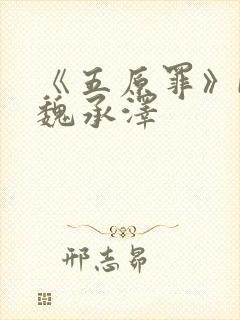 《五原罪》
魏承泽
邢志昴